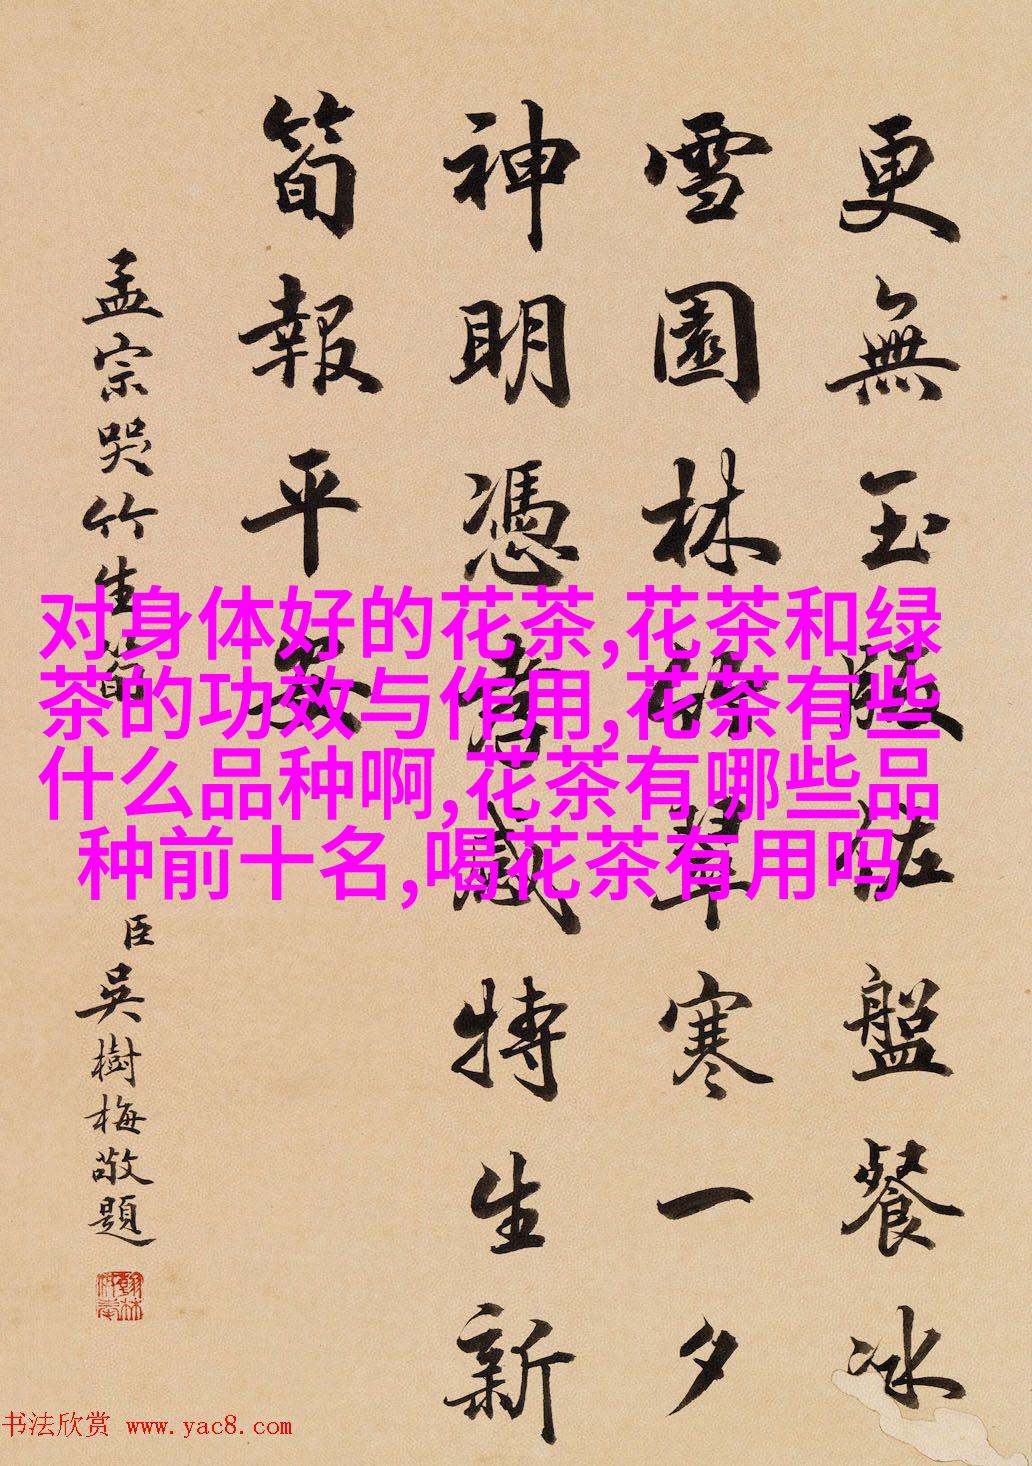 更無玉版佐盤餐冰
雪園林寒一夕
神明憑孝感特生新
筍報平安
孟宗哭竹生筍
臣吳樹梅敬題
对身体好的花茶,花茶和绿
茶的功效与作用,花茶有些
什么品种啊,花茶有哪些品
种前十名,喝花茶有用吗
书法欣赏 www.yac8.com